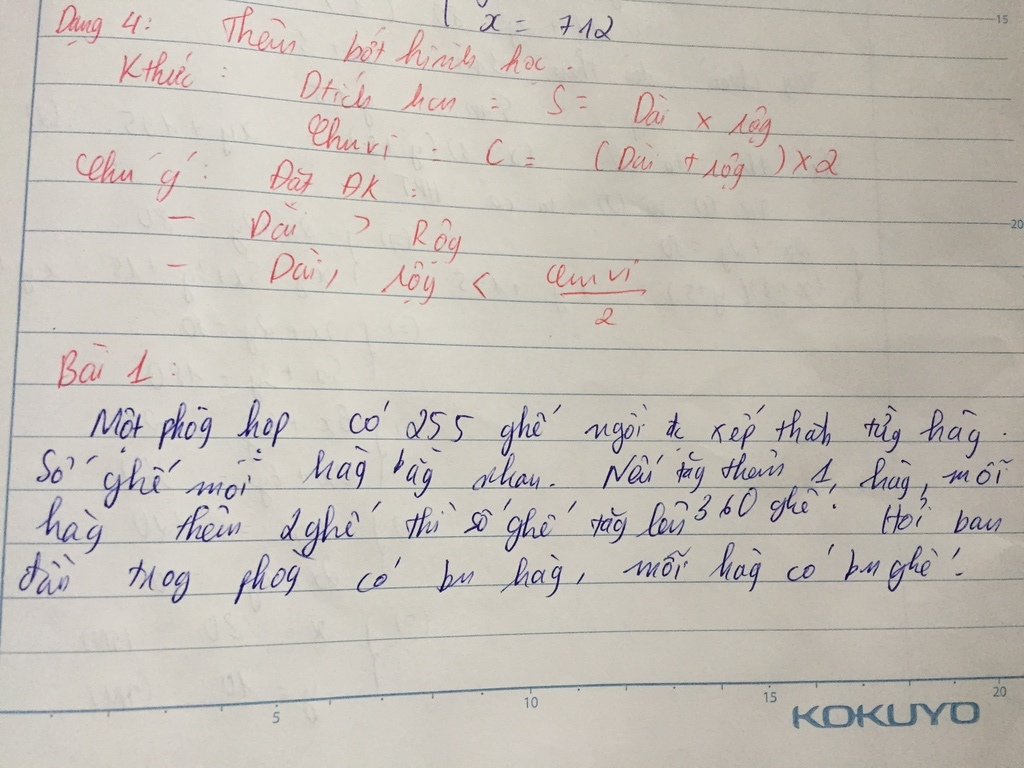 x = 712
15
Dạng 4: Thêm bớt hình học.
Kthức: Dtích hcn = S = Dài x rộg
Chu vi: C = (Dài + rộg) x 2
Chú ý: Đặt ĐK:
20
- Dài > Rộg
- Dài, rộg < chu vi / 2
Bài 1:
Một phòg họp có 255 ghế ngồi đc xếp thàh từg hàg.
Số ghế mỗi hàg bằg nhau. Nếu tăg thêm 1 hàg, mỗi
hàg thêm 2 ghế thì số ghế tăg lên 360 ghế. Hỏi ban
đầu trog phòg có bn hàg, mỗi hàg có bn ghế.
5 10 15 20
KOKUYO